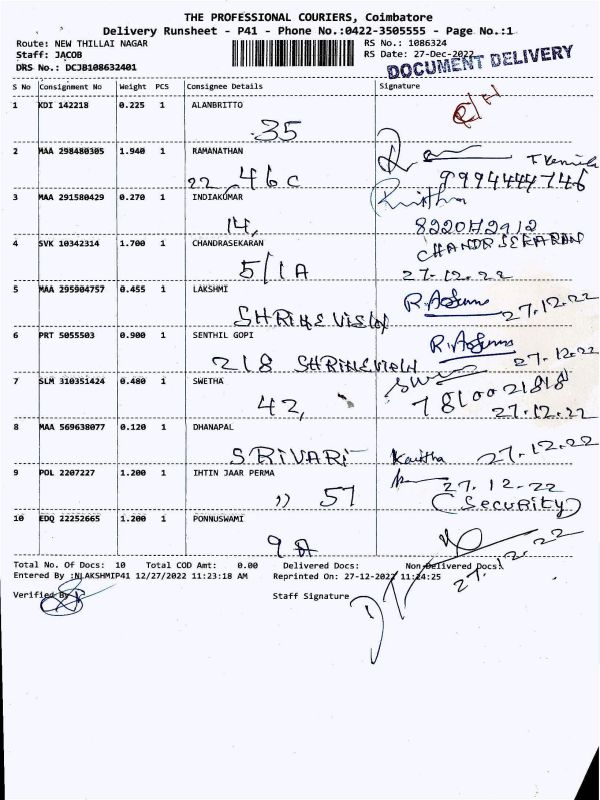 THE PROFESSIONAL COURIERS, Coimbatore
Delivery Runsheet - P41 - Phone No.:0422-3505555 - Page No.:1
Route: NEW THILLAI NAGAR RS No.: 1086324
Staff: JACOB RS Date: 27-Dec-2022
DRS No.: DCJB108632401
DOCUMENT DELIVERY
S No Consignment No Weight PCS Consignee Details Signature
1 KDI 142218 0.225 1 ALANBRITTO
35
2 MAA 298480305 1.940 1 RAMANATHAN
22 46 C 9994444746
3 MAA 291580429 0.270 1 INDIAKUMAR
14, 8220172912
4 SVK 10342314 1.700 1 CHANDRASEKARAN CHANDRSEKARAN
5/1A 27.12.22
5 MAA 295904757 0.455 1 LAKSHMI
SHRINE VISION 27.12.22
6 PRT 5055503 0.900 1 SENTHIL GOPI
218 SHRINEVISION 27.12.22
7 SLM 310351424 0.480 1 SWETHA
42, 7810021818
27.12.22
8 MAA 569638077 0.120 1 DHANAPAL
SRIVARI Kavitha 27.12.22
9 POL 2207227 1.200 1 IHTIN JAAR PERMA 27.12.22
,, 57 (Security)
10 EDQ 22252665 1.200 1 PONNUSWAMI
9A 27.12.22
Total No. Of Docs: 10 Total COD Amt: 0.00 Delivered Docs: Non-Delivered Docs:
Entered By :NLAKSHMIP41 12/27/2022 11:23:18 AM Reprinted On: 27-12-2022 11:24:25
Verified By Staff Signature